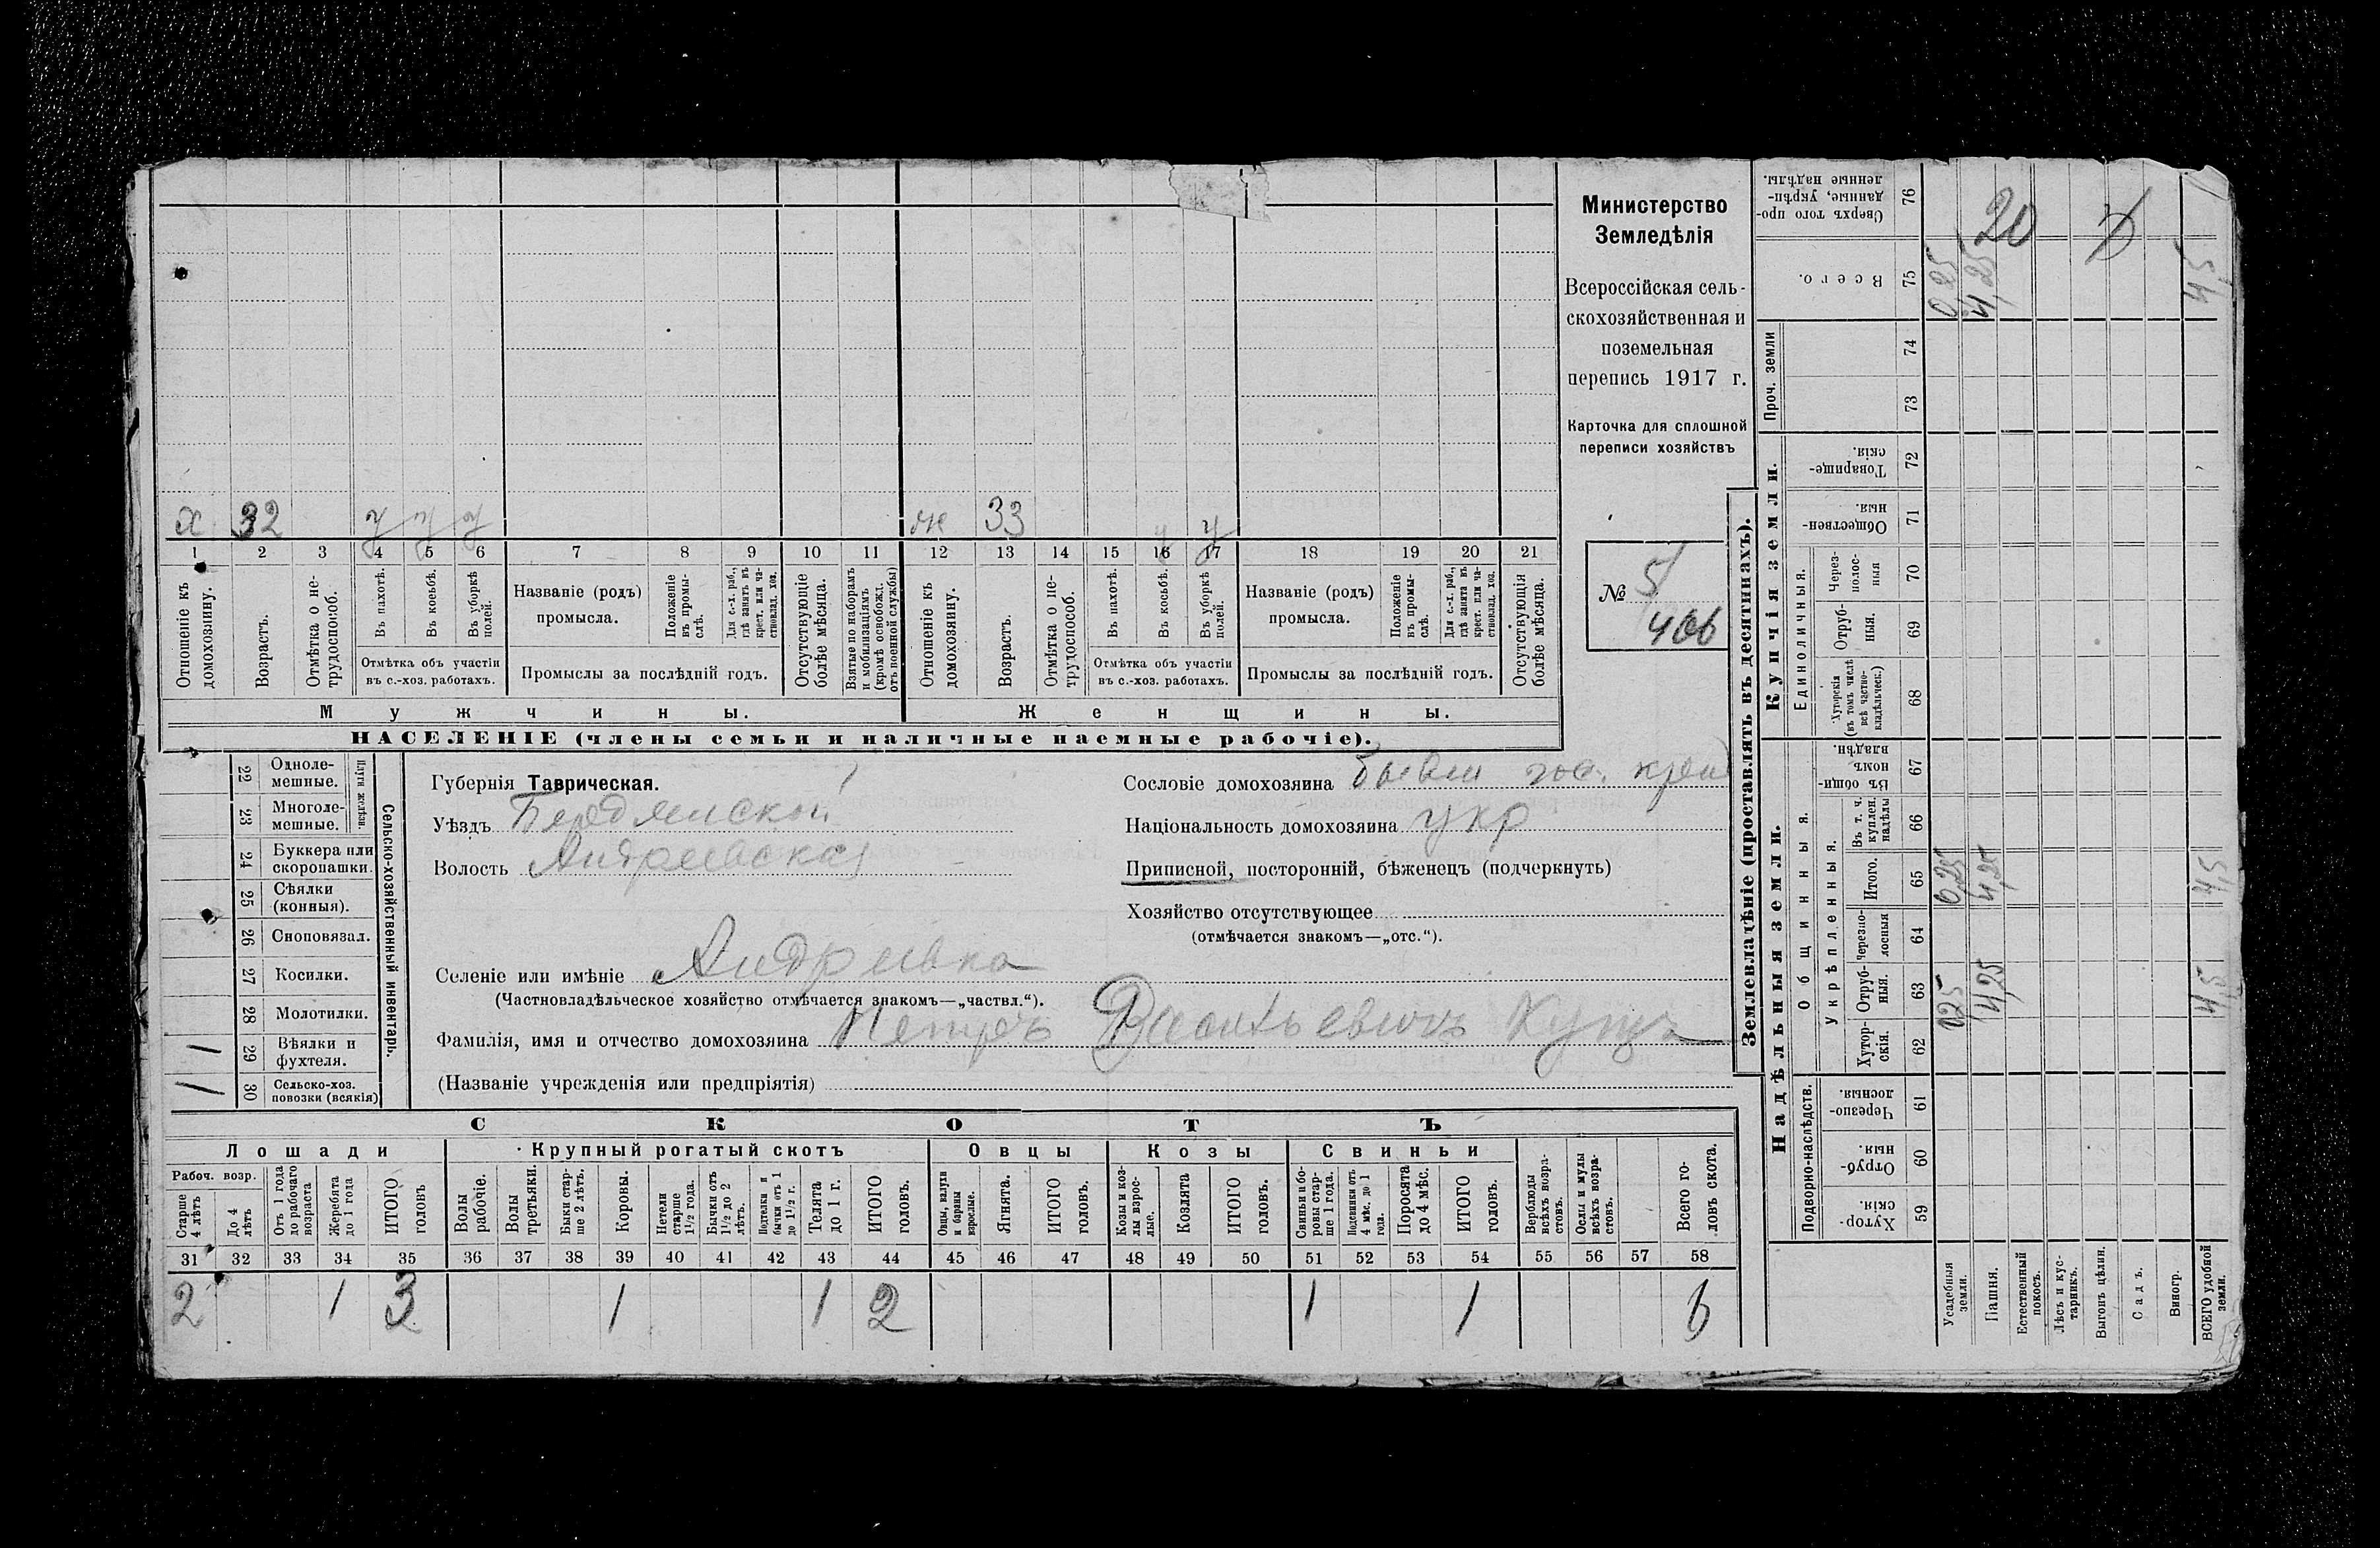 х 32 у у у ж 33 у у
1 2 3 4 5 6 7 8 9 10 11 12 13 14 15 16 17 18 19 20 21
Отношеніе къ домохозяину.
Возрастъ.
Отмѣтка о не-трудоспособ.
Въ пахотѣ.
Въ косьбѣ.
Въ уборкѣ полей.
Отмѣтка объ участіи
въ с.-хоз. работахъ.
Названіе (родъ)
промысла.
Положеніе въ промы-слѣ.
Для с.-х. раб., гдѣ занятъ въ крест. или ча-стновлад. хоз.
Промыслы за послѣдній годъ.
Отсутствующіе болѣе мѣсяца.
Взятые по наборамъ и мобилизаціямъ (кромѣ освобожд. отъ военной службы)
Отношеніе къ домохозяину.
Возрастъ.
Отмѣтка о не-трудоспособ.
Въ пахотѣ.
Въ косьбѣ.
Въ уборкѣ полей.
Отмѣтка объ участіи
въ с.-хоз. работахъ.
Названіе (родъ)
промысла.
Положеніе въ промы-слѣ.
Для с.-х. раб., гдѣ занята въ крест. или ча-стновлад. хоз.
Промыслы за послѣдній годъ.
Отсутствующія болѣе мѣсяца.
Мужчины. Женщины.
НАСЕЛЕНІЕ (члены семьи и наличные наемные рабочіе).
Министерство
Земледѣлія
Всероссійская сель-
скохозяйственная и
поземельная
перепись 1917 г.
Карточка для сплошной
переписи хозяйствъ
№ 5
406
22 Одноле-мешные.
23 Многоле-мешные.
Плуги желѣзн.
24 Буккера или скоропашки.
25 Сѣялки (конныя).
26 Сноповязал.
27 Косилки.
28 Молотилки.
1 29 Вѣялки и фухтеля.
1 30 Сельско-хоз. повозки (всякія)
Сельско-хозяйственный инвентарь.
Губернія Таврическая.
Уѣздъ Бердянской
Волость Андреевская
Селеніе или имѣніе с Андреевка
(Частновладѣльческое хозяйство отмѣчается знакомъ—„частвл.“).
Фамилія, имя и отчество домохозяина Петръ Васильевичъ Куцъ
(Названіе учрежденія или предпріятія)
Сословіе домохозяина бывш гос. крец
Національность домохозяина укр
Приписной, посторонній, бѣженецъ (подчеркнуть)
Хозяйство отсутствующее
(отмѣчается знакомъ—„отс.“).
СКОТЪ
Лошади Крупный рогатый скотъ Овцы Козы Свиньи
Рабоч. возр.
Старше 4 лѣтъ
До 4 лѣтъ
Отъ 1 года до рабочаго возраста
Жеребята до 1 года
ИТОГО головъ
Волы рабочіе.
Волы третьяки.
Быки стар-ше 2 лѣтъ.
Коровы.
Нетели старше 1½ года.
Бычки отъ 1½ до 2 лѣтъ.
Подтелки и бычки отъ 1 до 1½ г.
Телята до 1 г.
ИТОГО головъ.
Овцы, валухи и бараны взрослые.
Ягнята.
ИТОГО головъ.
Козы и коз-лы взрос-лые.
Козлята
ИТОГО головъ.
Свиньи и бо-ровы стар-ше 1 года.
Подсвинки отъ 4 мѣс. до 1 года.
Поросята до 4 мѣс.
ИТОГО головъ.
Верблюды всѣхъ возра-стовъ.
Ослы и мулы всѣхъ возра-стовъ.
Всего го-ловъ скота.
31 32 33 34 35 36 37 38 39 40 41 42 43 44 45 46 47 48 49 50 51 52 53 54 55 56 57 58
2 1 3 1 1 2 1 1 6
Землевладѣніе (проставлять въ десятинахъ).
Надѣльныя земли. Купчія земли. Проч. земли
Подворно-наслѣдств. Общинныя. Единоличныя.
Укрѣпленныя.
Хутор-скія. 59
Отруб-ныя. 60
Черезпо-лосныя. 61
Хутор-скія. 62
Отруб-ныя. 63
Черезпо-лосныя 64
Итого. 65
Въ т. ч. куплен. надѣлы 66
Въ общин-номъ владѣн. 67
Хуторскія (въ томъ числѣ всѣ частно-владѣльческ.) 68
Отруб-ныя. 69
Через-полос-ныя 70
Обществен-ныя. 71
Товарище-скія. 72
73
74
Всего. 75
Сверхъ того про-данные, укрѣп-ленные надѣлы. 76
Усадебныя земли. 0,25 0,25 0,25
Пашня. 4,25 4,25 4,25
Естественный покосъ.
Лѣсъ и кус-тарникъ.
Выгонъ цѣлин.
Садъ.
Виногр.
ВСЕГО удобной земли. 4,5 4,5 4,5
20